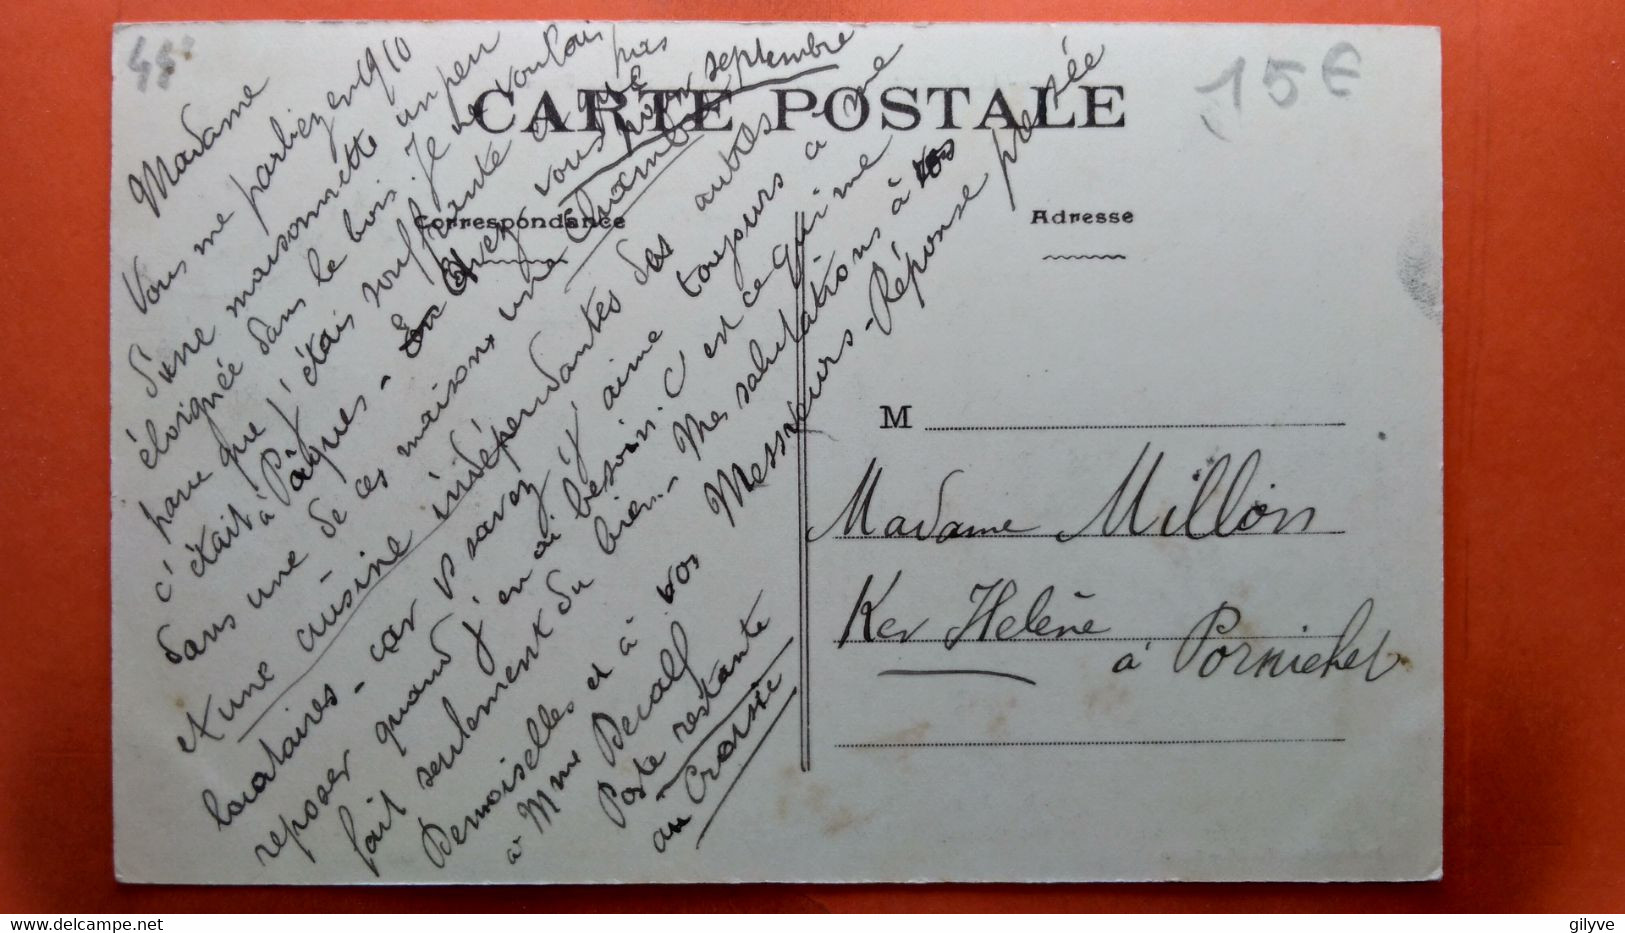 44
15€
CARTE POSTALE
Correspondance
Adresse
Madame
Vous me parliez en 1910
d'une maisonnette un peu
éloignée dans le bois. Je ne voulais
parce que j'étais souffrante et que
c'était à Pâques - Avez vous pour septembre
dans une de ces maisons une Chambre
et une cuisine indépendantes des autres
locataires - car v savez j'aime toujours à me
reposer quand j'en ai besoin. C'est ce qui me
fait seulement du bien - Mes salutations à vos
Demoiselles et à vos Messieurs - Réponse pressée
à Mme Decalf
Poste restante
au Croisic
M
Madame Millon
Ker Helène
à Pornichet
gilyve